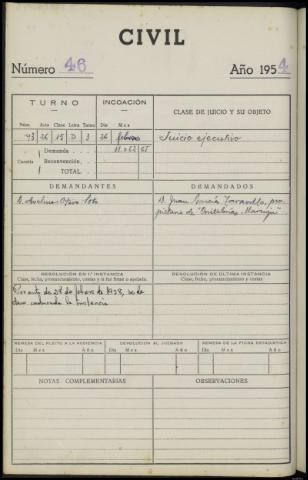 CIVIL
Número 46 Año 1954
TURNO INCOACIÓN CLASE DE JUICIO Y SU OBJETO
Núm. Año Clase Letra Turno Día Mes
43 26 15 D 3 26 febrero Juicio ejecutivo
Demanda
Cuantía Reconvención
TOTAL
DEMANDANTES DEMANDADOS
D. Avelino Soto D. Juan García pro
pietario de
RESOLUCIÓN EN 1.ª INSTANCIA RESOLUCIÓN DE ÚLTIMA INSTANCIA
Clase, fecha, pronunciamiento, costas y si fué firme o apelada. Clase, fecha, pronunciamiento y costas
Por auto de 28 de febrero de 1958, se de
claró caducada la instancia
REMESA DEL PLEITO A LA AUDIENCIA DEVOLUCIÓN AL JUZGADO REMESA DE LA FICHA ESTADÍSTICA
Día Mes Año Día Mes Año Día Mes Año
NOTAS COMPLEMENTARIAS OBSERVACIONES